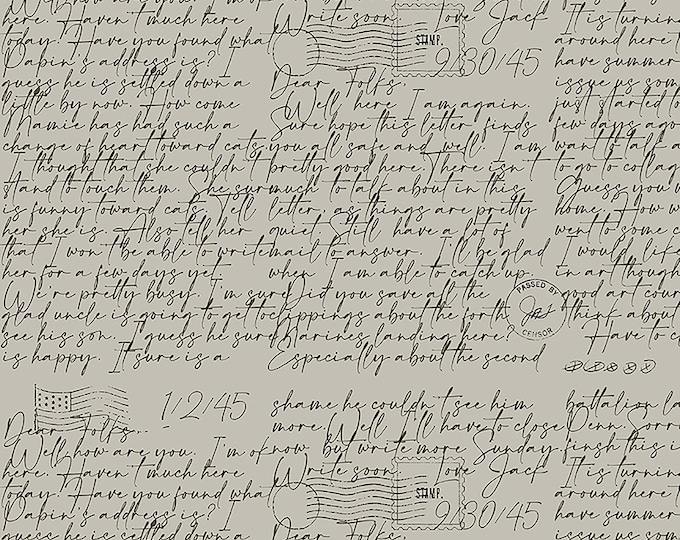 here. Haven't much here
today. Have you found what
Papin's address is? I
guess he is settled down a
little by now. How come
Mamie has had such a
change of heart toward cats,
I though that she couldn't
stand to touch them. She sur
is funny toward cats. Tell
her she is. Also tell her
that I won't be able to write
her for a few days yet.
We're pretty busy. I'm sure
glad uncle is going to get to
see his son. I guess he sur
is happy. It sure is a
1/2/45
Dear Folks..
Well how are you. I'm ok
here. Haven't much here
today. Have you found what
Papin's address is? I
guess he is settled down a
Write soon Love Jack
STAMP.
9/30/45
Dear Folks.
Well here I am again.
Sure hope this letter finds
you all safe and well. I am
pretty good here. There isn't
much to talk about in this
letter, as things are pretty
quiet. Still have a lot of
mail to answer. I'll be glad
when I am able to catch up.
Did you save all the
clippings about the forth
Marines landing here?
Especially about the second
PASSED BY
CENSOR
shame he couldn't see him
more. Well I'll have to close
know, but write more Sunday.
Write soon Love Jack
STAMP.
9/30/45
Dear Folks.
It is turning
around here t
have summer
issue us som
just started to
few days ago
want to talk a
to go to collag
Guess you w
home. How w
went to some c
I would like
in art though
good art cour
think about
Have to c
battalion la
Penn. Sorr
finsh this i
It is turnin
around here t
have summer
issue us som